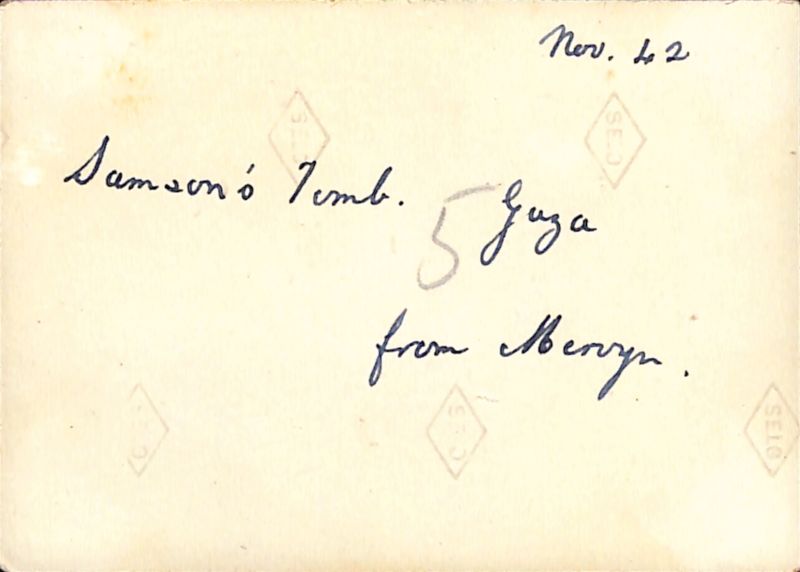 Nov. 42
SELO
SELO
Samson's Tomb.
5
Gaza
from Mervyn.
SELO
SELO